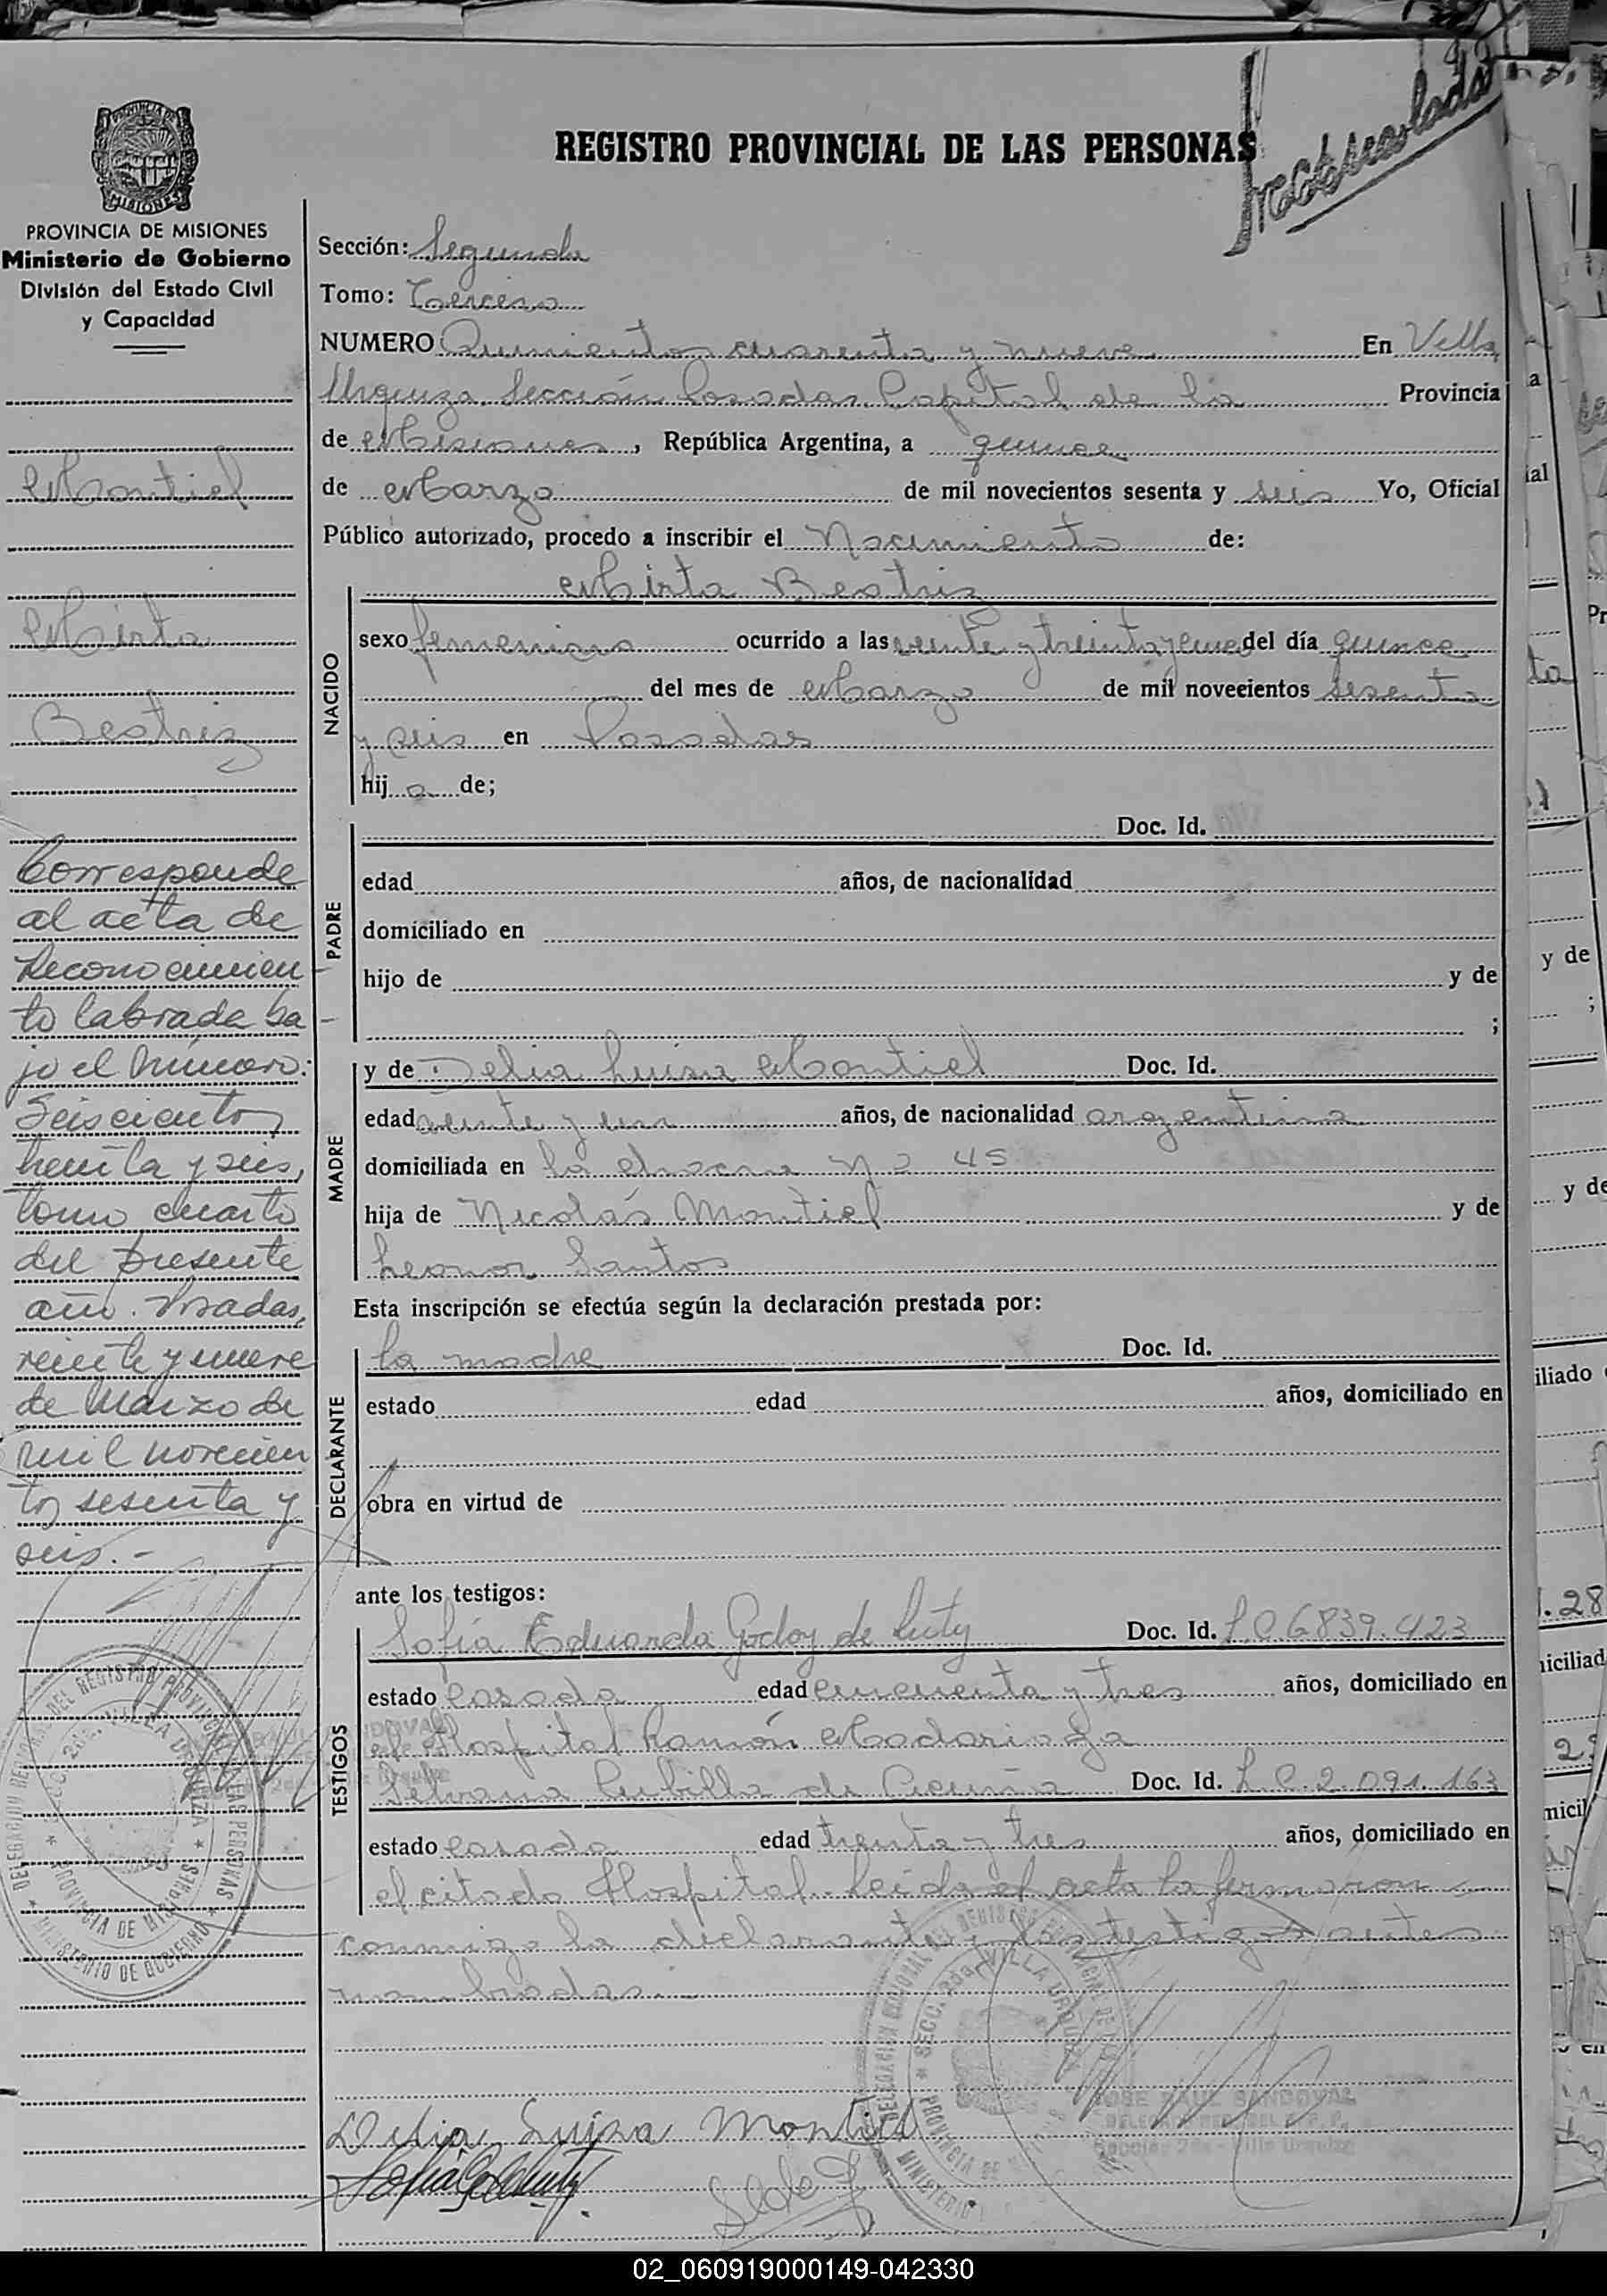 Inmatriculada
REGISTRO PROVINCIAL DE LAS PERSONAS
PROVINCIA DE MISIONES
Ministerio de Gobierno
División del Estado Civil
y Capacidad
Montiel
Mirta
Beatriz
Corresponde
al acta de
Reconocimien-
to labrada ba-
jo el número:
Seiscientos
treinta y seis,
tomo cuarto
del presente
año. Posadas,
veinte y nueve
de Marzo de
mil novecien
tos sesenta y
seis.-
Sección: Segunda
Tomo: Tercero
NUMERO Quinientos cuarenta y nueve En Villa
Urquiza Sección Posadas Capital de la Provincia
de Misiones, República Argentina, a quince
de Marzo de mil novecientos sesenta y seis Yo, Oficial
Público autorizado, procedo a inscribir el Nacimiento de:
NACIDO
Mirta Beatriz
sexo femenino ocurrido a las veinte y treinta y cinco del día quince
del mes de Marzo de mil novecientos sesenta
y seis en Posadas
hija de;
PADRE
Doc. Id.
edad años, de nacionalidad
domiciliado en
hijo de y de
;
MADRE
y de Delia Luisa Montiel Doc. Id.
edad veinte y un años, de nacionalidad argentina
domiciliada en la chacra Nº 45
hija de Nicolás Montiel y de
Leonor Santos
Esta inscripción se efectúa según la declaración prestada por:
DECLARANTE
la madre Doc. Id.
estado edad años, domiciliado en
obra en virtud de
ante los testigos:
TESTIGOS
Sofía Eduarda Godoy de Luty Doc. Id. L.C. 6839.423
estado casada edad cincuenta y tres años, domiciliado en
el Hospital Ramón Madariaga
Silvana Cubilla de Acuña Doc. Id. L.C. 2.091.163
estado casada edad treinta y tres años, domiciliado en
el citado Hospital. Leida el acta la firmaron
conmigo la declarante y las testigos antes
nombradas.
Delia Luisa Montiel
JOSE RAUL SANDOVAL
Sección 2da - Villa Urquiza
DELEGACION REGIONAL DEL REGISTRO PROVINCIAL DE LAS PERSONAS
SECC. 2da. VILLA URQUIZA
PROVINCIA DE MISIONES
MINISTERIO DE GOBIERNO
02_060919000149-042330